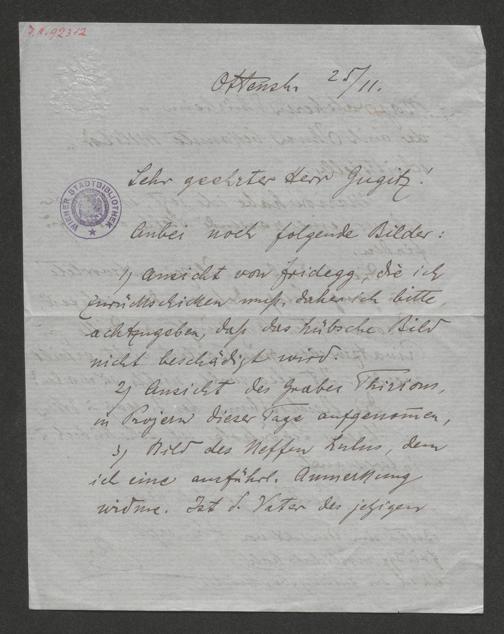 J.N. 92312
Ottensh. 25/11.
WIENER STADTBIBLIOTHEK
Sehr geehrter Herr Gugitz!
Anbei noch folgende Bilder:
1) Ansicht von Fridegg, die ich
zurückschicken muß, daher ich bitte,
achtzugeben, daß das hübsche Bild
nicht beschädigt wird.
2) Ansicht des Grabes Thirions,
in Projern dieser Tage aufgenommen,
3) Bild des Neffen Lulus, dem
ich eine ausführl. Anmerkung
widme. Ist d. Vater des jetzigen